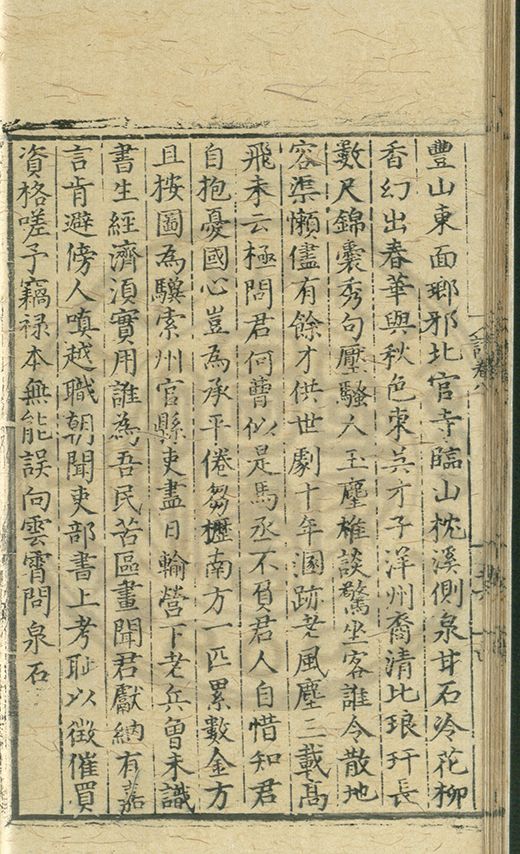 豐山東面瑯邪北官寺臨山枕溪側泉甘石冷花柳
香幻出春華與秋色東吳才子洋州裔清比琅玕長
數尺錦囊秀句壓騷人玉麈雄談驚坐客誰令散地
容渠懶儘有餘才供世劇十年溷跡老風塵三載高
飛未云極問君何曹似是馬丞不負君人自惜知君
自抱憂國心豈為承平倦芻櫪南方一匹累數金方
且按圖為驥索州官縣吏盡日輸營下老兵曾未識
書生經濟須實用誰為吾民苦區畫聞君獻納有嘉
言肯避傍人嗔越職朝聞吏部書上考恥以徵催買
資格嗟予竊禄本無能誤向雲霄問泉石
卷八